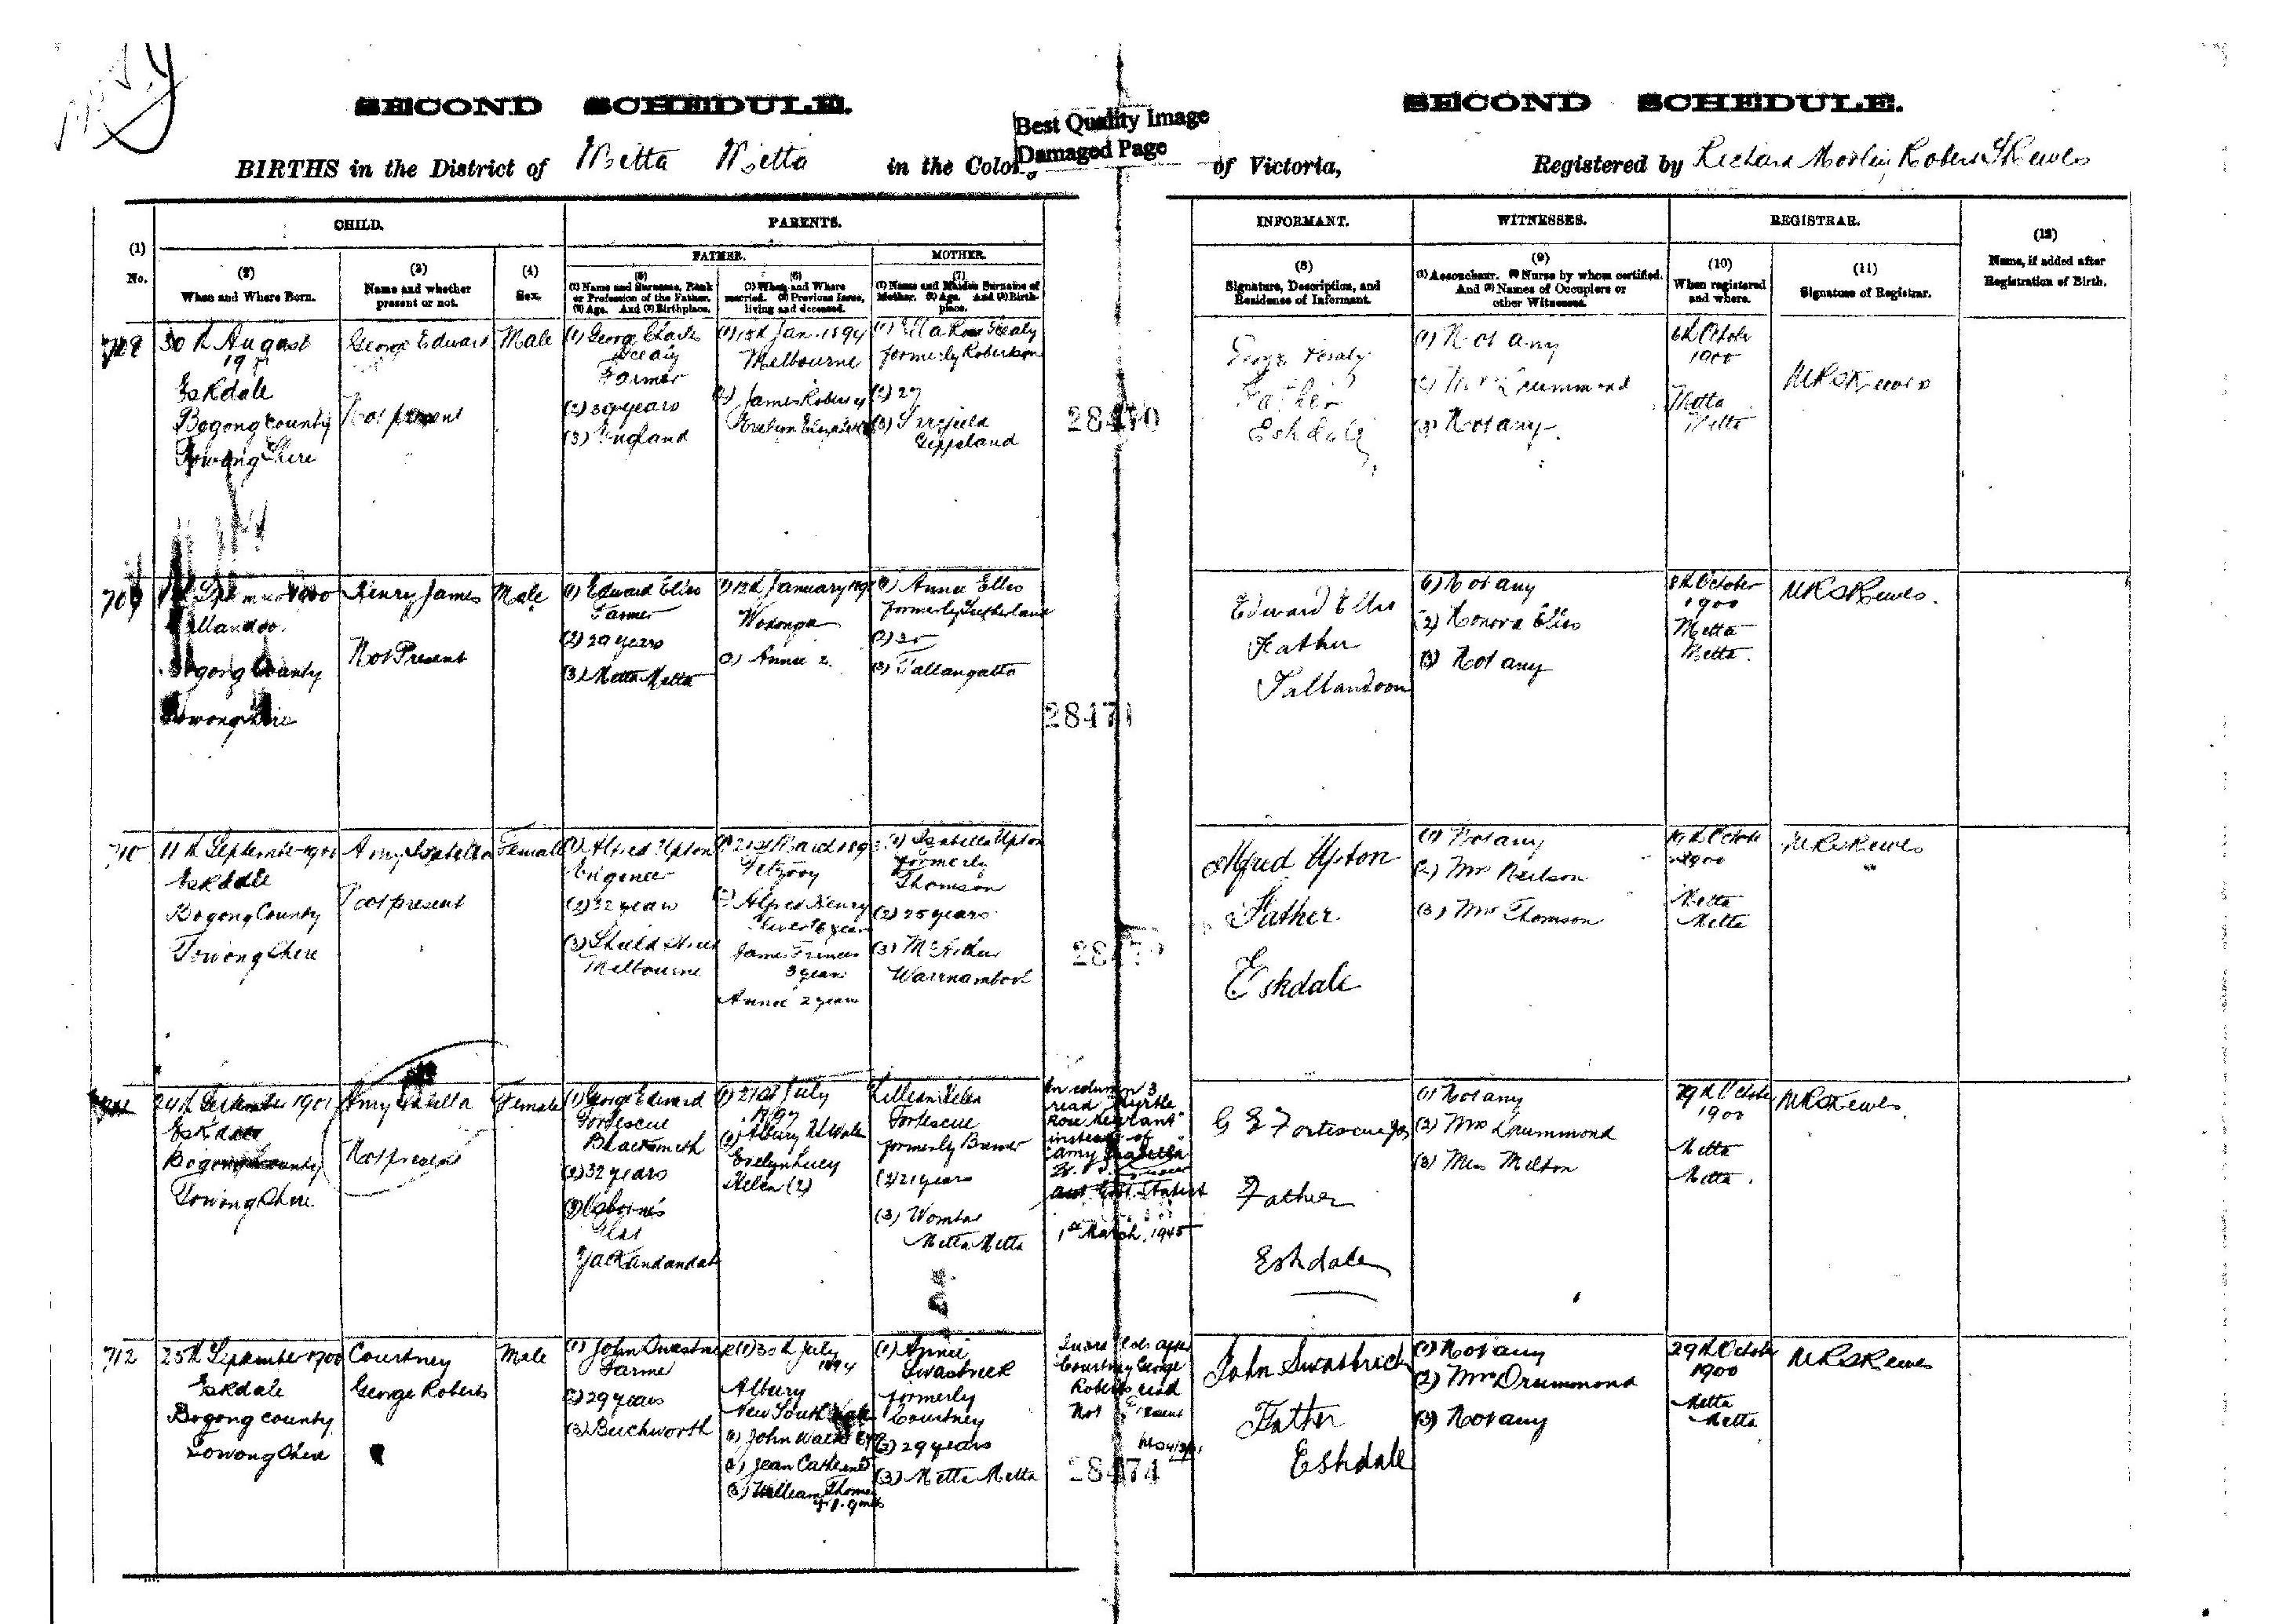 SECOND SCHEDULE.
SECOND SCHEDULE.
Best Quality Image
Damaged Page
BIRTHS in the District of Mitta Mitta in the Colony
of Victoria,
Registered by Richard Robert Skewes
CHILD.
PARENTS.
INFORMANT.
WITNESSES.
REGISTRAR.
(1)
No.
(2)
When and Where Born.
(3)
Name and whether
present or not.
(4)
Sex.
FATHER.
MOTHER.
(5)
(1) Name and Surname, Rank
or Profession of the Father.
(2) Age. And (3) Birthplace.
(6)
(1) When and Where
married. (2) Previous Issue,
living and deceased.
(7)
(1) Name and Maiden Surname of
Mother. (2) Age. And (3) Birth-
place.
(8)
Signature, Description, and
Residence of Informant.
(9)
(1) Accoucheur. (2) Nurse by whom certified.
And (3) Names of Occupiers or
other Witnesses.
(10)
When registered
and where.
(11)
Signature of Registrar.
(12)
Name, if added after
Registration of Birth.
30th August
Eskdale
Bogong County
Towong Shire
George Edward
Not present
Male
(1) George Charles
Farmer
(2) 39 years
(3) England
(1) 15th Jan. 1894
Melbourne
(2) James Robert
(1) Ella Rose
formerly Robertson
(2) 27
(3)
Gippsland
28470
George
Father
Eskdale
(1) Not any
(2) Mrs Drummond
(3) Not any.
6th October
1900
Mitta
Mitta
MRSkewes
709
Bogong County
Towong Shire
Henry James
Not Present
Male
(1) Edward Ellis
Farmer
(2) 29 years
(3) Mitta Mitta
(1) 12th January
Wodonga
(2) Annie 2.
(1) Annie Ellis
formerly Sutherland
(3) Tallangatta
28471
Edward Ellis
Father
Tallandoon
(1) Not any
(2) Honora Ellis
(3) Not any
8th October
1900
Mitta
Mitta.
MRSkewes.
710
11th September 1900
Eskdale
Bogong County
Towong Shire
Amy Isabella
Not present
Female
(1) Alfred Upton
Engineer
(2) 32 years
(3)
Melbourne
(1) 21st March
Fitzroy
(2) Alfred Henry
6 years
James Francis
3 years
Annie 2 years
(1) Isabella Upton
formerly
Thomson
(2) 25 years
(3) McArthur
Warrnambool
Alfred Upton
Father
Eskdale
(1) Not any
(2) Mrs Neilson
(3) Mrs Thomson
October
1900
Mitta
Mitta
MRSkewes
24th September
Eskdale
Bogong County
Towong Shire
Amy Isabella
Not present
Female
(1) George Edward
Fortescue
Blacksmith
(2) 32 years
(3) Osborne's
Flat
Yackandandah
(1) 21st July
1897
Albury
Evelyn Lucy
Helen (2)
Lillian Helen
Fortescue
formerly
(2) 21 years
(3)
Mitta Mitta
In column 3
read "Myrtle
Rose
instead of
"Amy Isabella"
1st March, 1945
G E Fortescue
Father
Eskdale
(1) Not any
(2) Mrs Drummond
(3) Mrs Milton
29th October
1900
Mitta
Mitta.
MRSkewes.
712
25th September 1900
Eskdale
Bogong County
Towong Shire
Courtney
George Roberts
Male
(1) John Swastrick
Farmer
(2) 29 years
(3) Beechworth
(1) 30th July
1894
Albury
New South Wales
(1) John
(2) Jean Catherine
(3) William Thomas
(1) Annie
Swastrick
formerly
Courtney
(2) 29 years
(3) Mitta Mitta
after
Courtney George
Roberts read
Not Present
28474
John Swastrick
Father
Eskdale
(1) Not any
(2) Mrs Drummond
(3) Not any
29th October
1900
Mitta
Mitta
MRSkewes